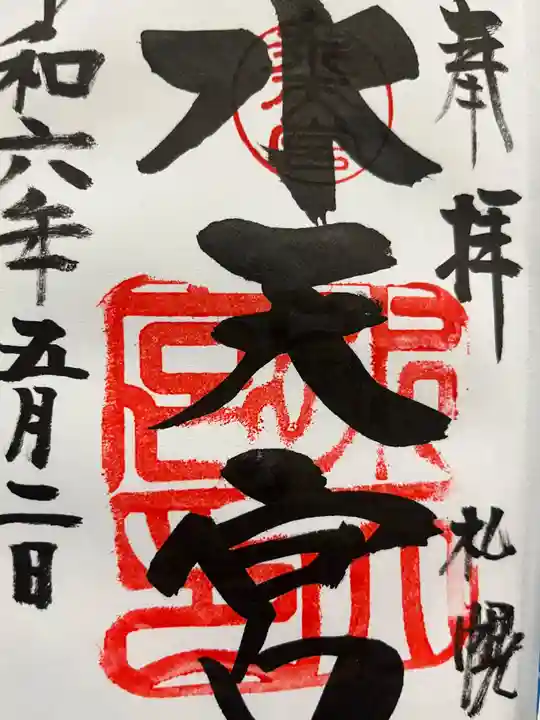 奉拝
札幌
水天宮
令和六年五月二日